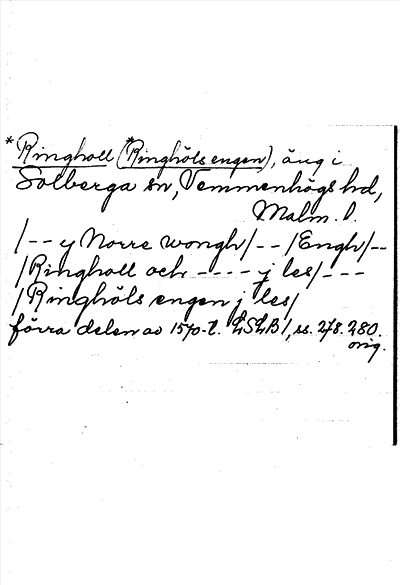 *Ringholl (*Ringhöls engen), äng i
Solberga sn, Vemmenhögs hd,
Malm. l.
/-- y Norre wongh/-- /Engh/--
/Ringholl och ---- j les/---
/Ringhöls engen j les/
förra delen av 1570-t. LSLB 1, ss. 278. 280.
orig.